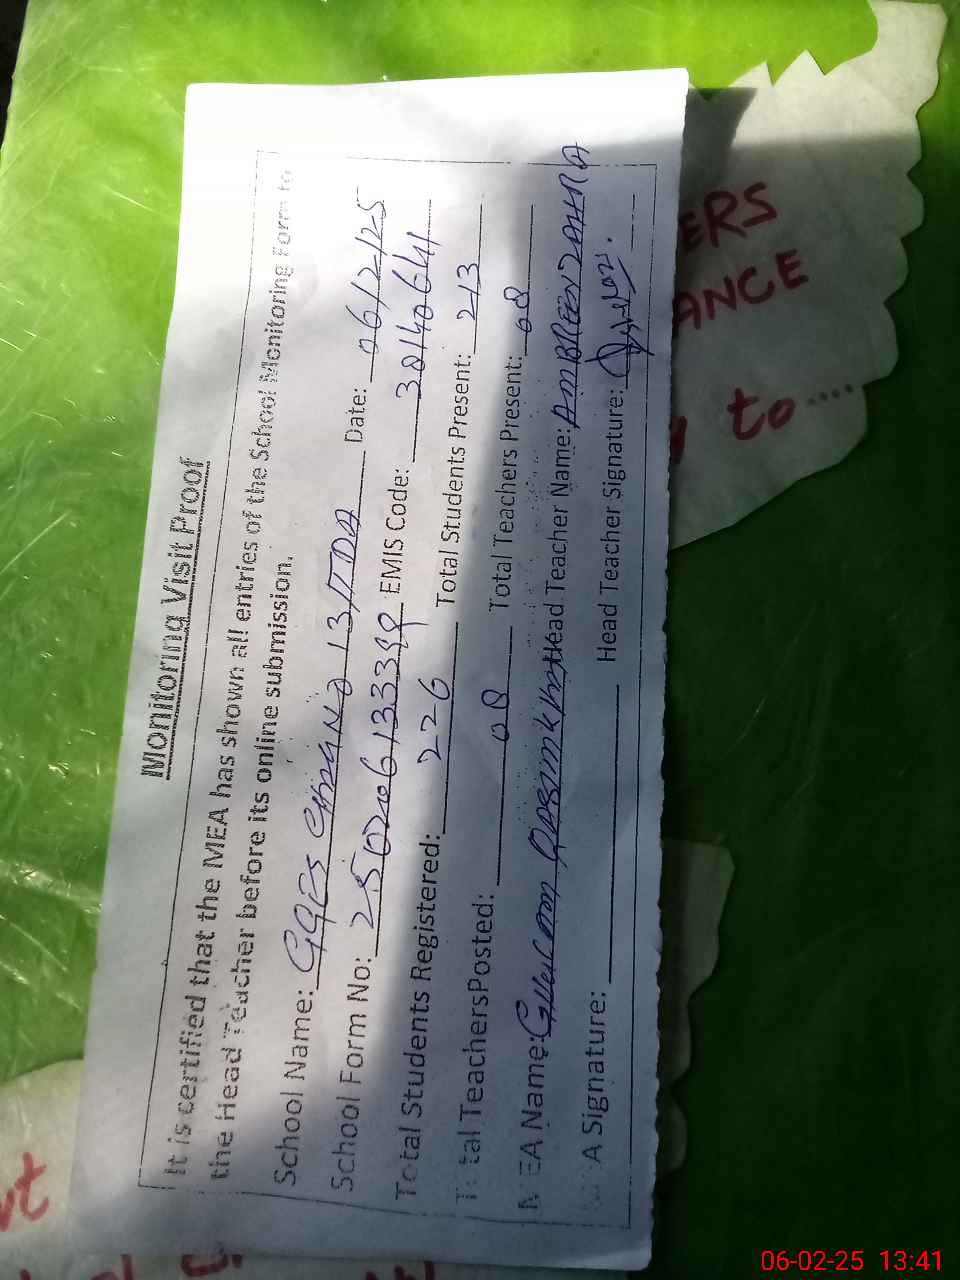 Monitoring Visit Proof
It is certified that the MEA has shown all entries of the School Monitoring Form to
the Head Teacher before its online submission.
School Name: GGES CHAK NO 13/TDA Date: 06/2/25
School Form No: EMIS Code:
Total Students Registered: 226 Total Students Present: 213
Total Teachers Posted: 08 Total Teachers Present: 08
MEA Name: Head Teacher Name: AMBREEN ZAHRA
A Signature: Head Teacher Signature:
ERS
ANCE
to....
06-02-25 13:41